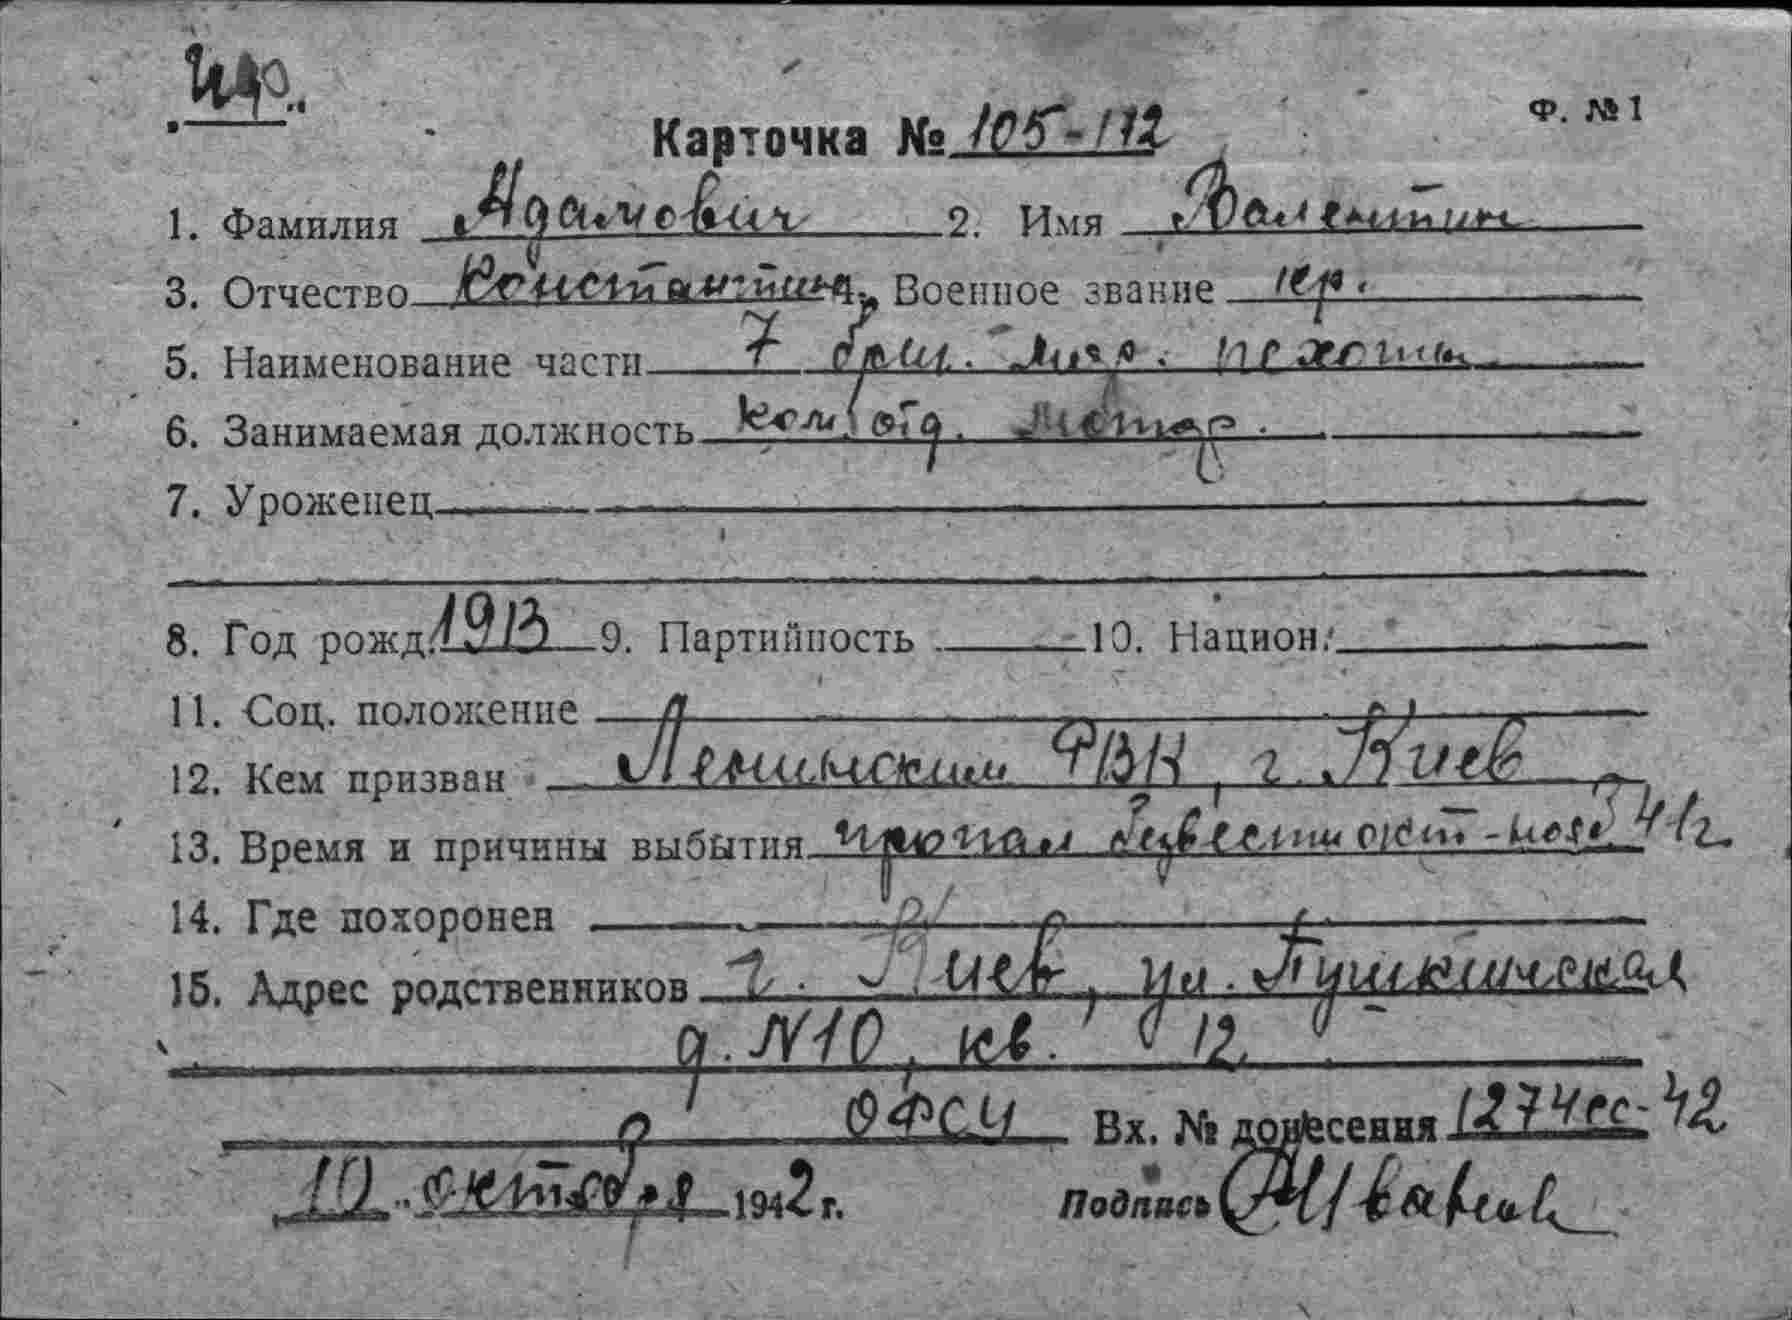 Ф. № 1
Карточка № 105-112
1. Фамилия Адамович 2. Имя Валентин
3. Отчество Константин. Военное звание кр.
5. Наименование части 7 бриг. мор. пехоты
6. Занимаемая должность ком. отд.
7. Уроженец
8. Год рожд. 1913 9. Партийность 10. Национ.
11. Соц. положение
12. Кем призван Ленинским РВК, г. Киев
13. Время и причины выбытия пропал безвести окт-нояб 41г.
14. Где похоронен
15. Адрес родственников г. Киев, ул. Пушкинская
д. N10, кв. 12
Вх. № донесения 1274сс-42
10 октября 1942 г. Подпись